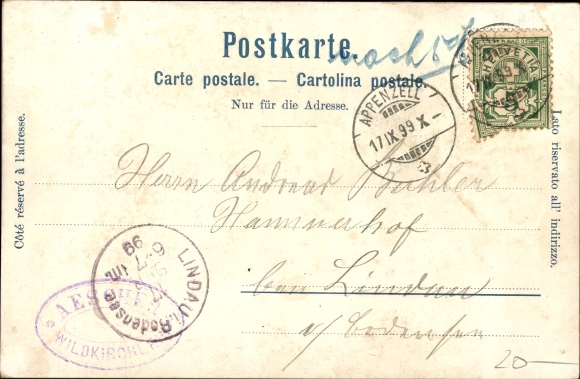 Postkarte.
nach 5
Carte postale. — Cartolina postale.
Nur für die Adresse.
Côté réservé à l'adresse.
Lato riservato all' indirizzo.
HELVETIA
APPENZELL
17.IX.99.X–
Herrn Andreas Bühler
Hammerhof
bei Lindau
i/Bodensee
LINDAU i. Bodensee
99
AESCHER
WILDKIRCHLI
20–